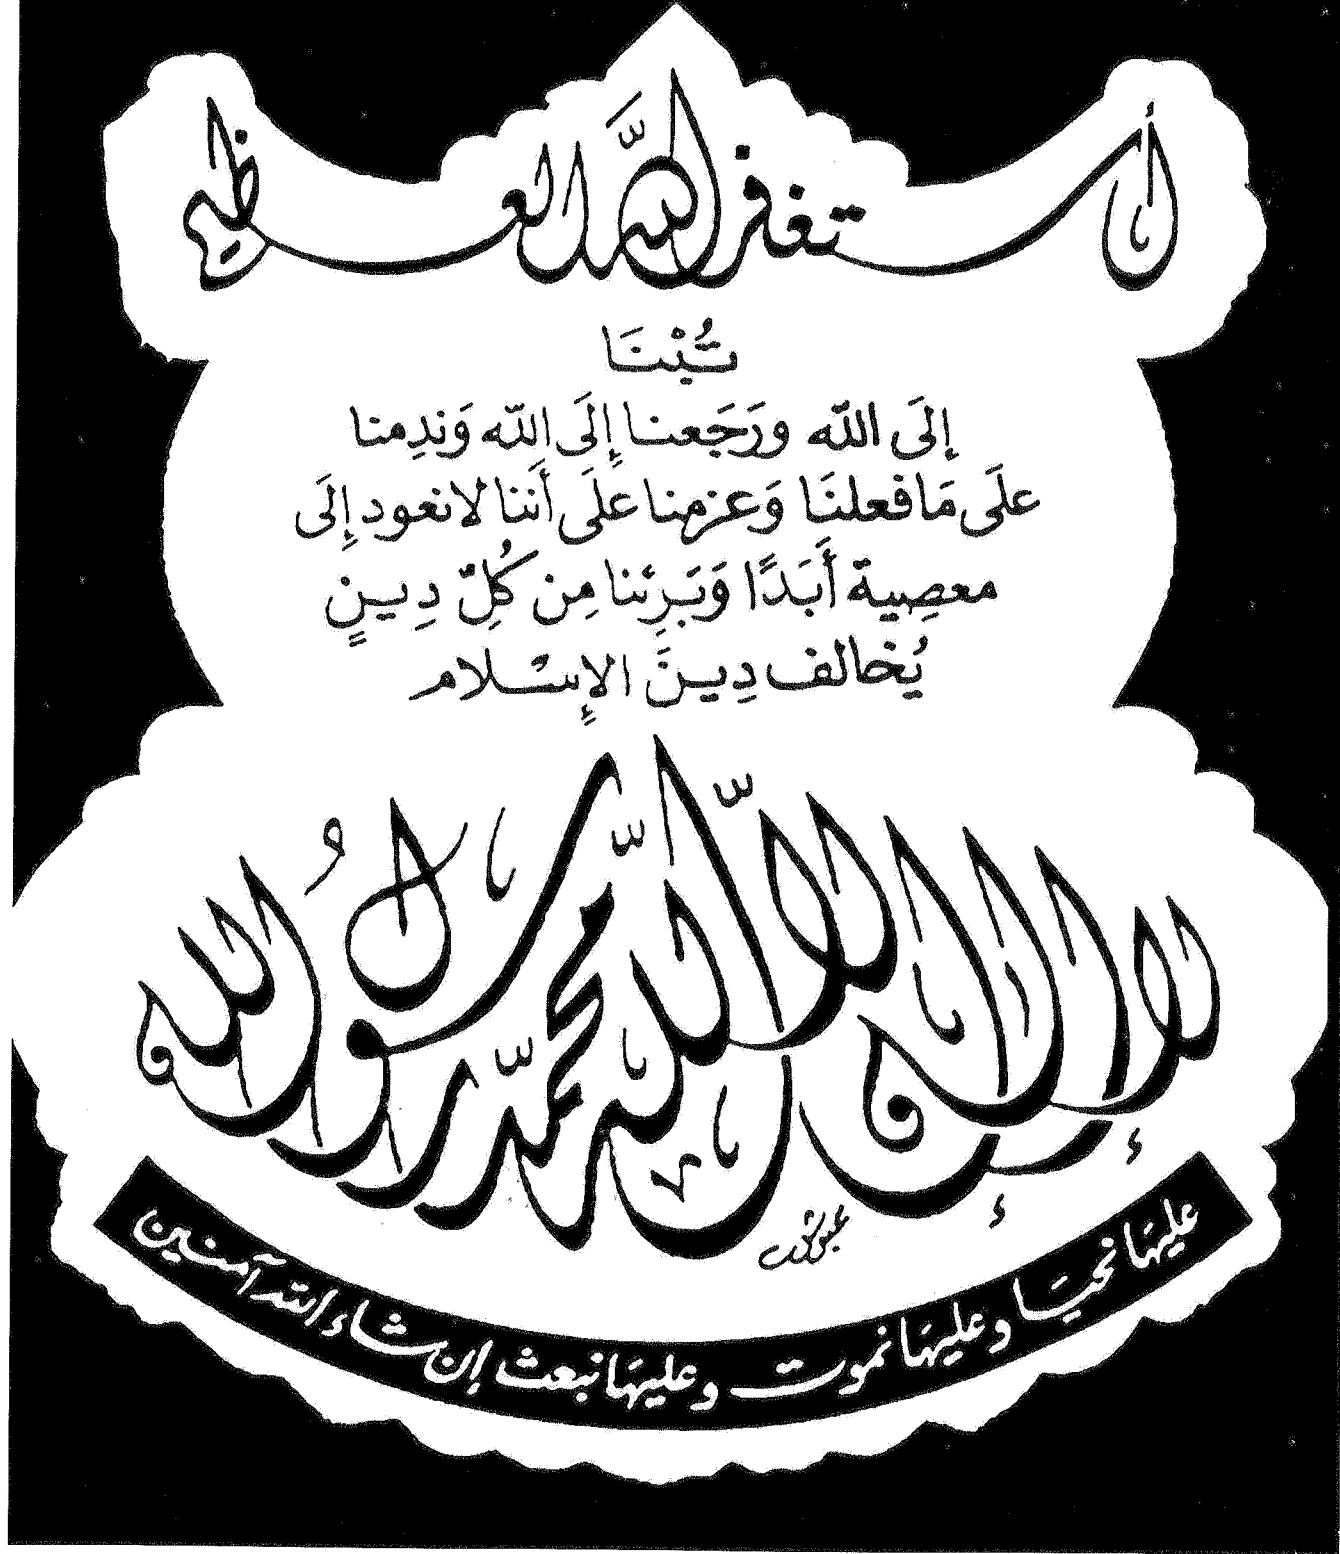 أستغفر الله العظيم
تُبْنَا
إلَى اللّه ورَجَعنا إِلَى اللّه وَندِمنا
علَى مَا فعلنَا وَعزمنا علَى أَننا لا نعود إِلَى
معصِية أَبَدًا وَبَرِئنا مِن كُلِّ دِينٍ
يُخالف دِينَ الإِسْلام
لا إله إلا اللّه محمّد رسُول الله
عليهَا نحيَا وعليهَا نموت وعليهَا نبعث إن شاء الله آمنين